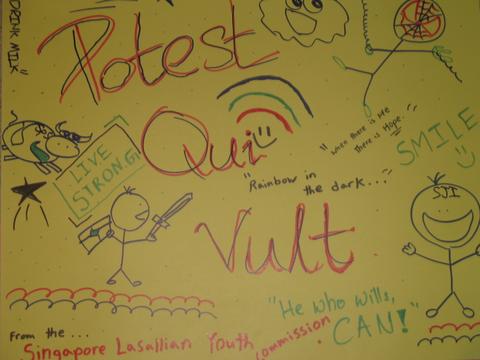 DRINK MILK"
Potest
Qui
Vult
"When there is Me
there is Hope."
SMILE
LIVE
STRONG!
"Rainbow in
the dark..."
SJI
"He who wills,
CAN!"
From the...
Singapore Lasallian Youth Commission.